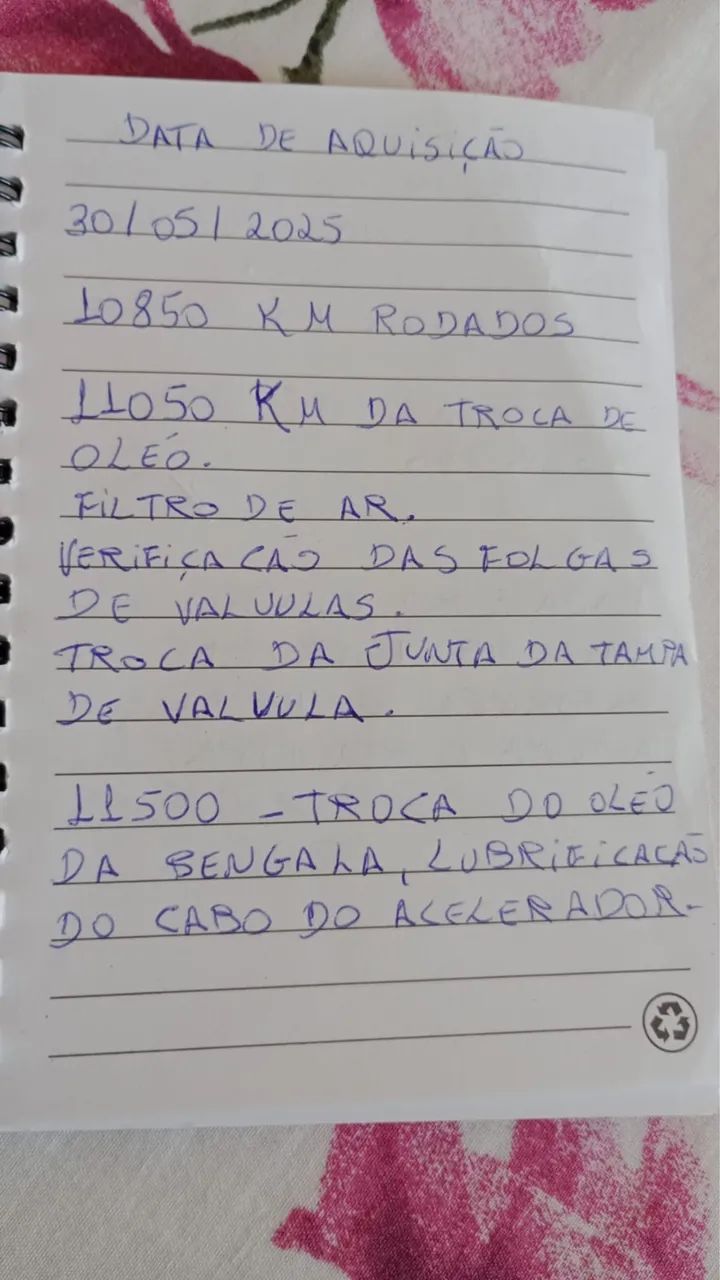 DATA DE AQUISIÇÃO
30/05/2025
10850 KM RODADOS
11050 KM DA TROCA DE
OLÉO.
FILTRO DE AR.
VERIFIÇACÃO DAS FOLGAS
DE VALVULAS.
TROCA DA JUNTA DA TAMPA
DE VALVULA.
11500 - TROCA DO OLÉO
DA BENGALA, LUBRIFICACÃO
DO CABO DO ACELERADOR-